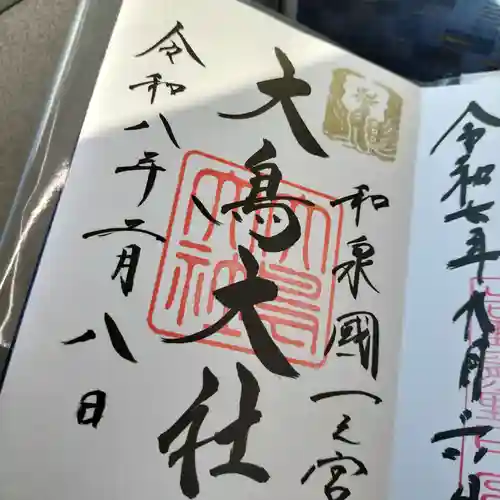 令和七年九月六日
和泉國一之宮
大鳥大社
令和八年二月八日